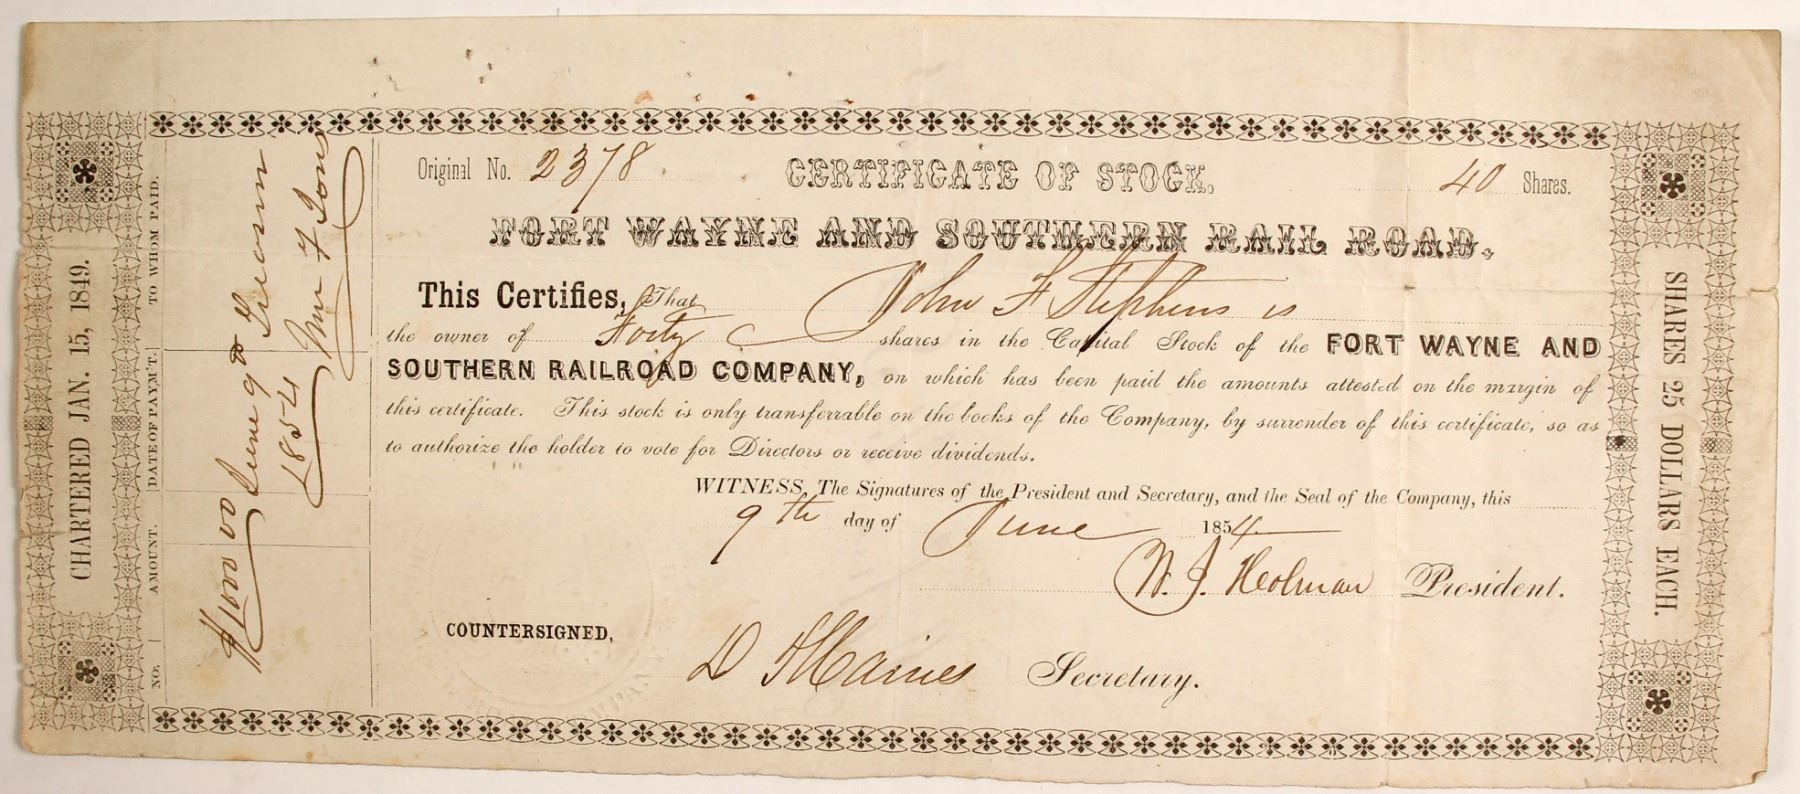 CHARTERED JAN. 15, 1849.
NO. AMOUNT. DATE OF PAYM'T. TO WHOM PAID.
$1000 00 June 9th
1854
Original No. 2378 CERTIFICATE OF STOCK. 40 Shares.
FORT WAYNE AND SOUTHERN RAIL ROAD.
This Certifies, That John F Stephens is
the owner of Forty shares in the Capital Stock of the FORT WAYNE AND
SOUTHERN RAILROAD COMPANY, on which has been paid the amounts attested on the margin of
this certificate. This stock is only transferrable on the books of the Company, by surrender of this certificate, so as
to authorize the holder to vote for Directors or receive dividends.
WITNESS, The Signatures of the President and Secretary, and the Seal of the Company, this
9th day of June 1854
W. J. Holman President.
COUNTERSIGNED,
D F Haines Secretary.
SHARES 25 DOLLARS EACH.